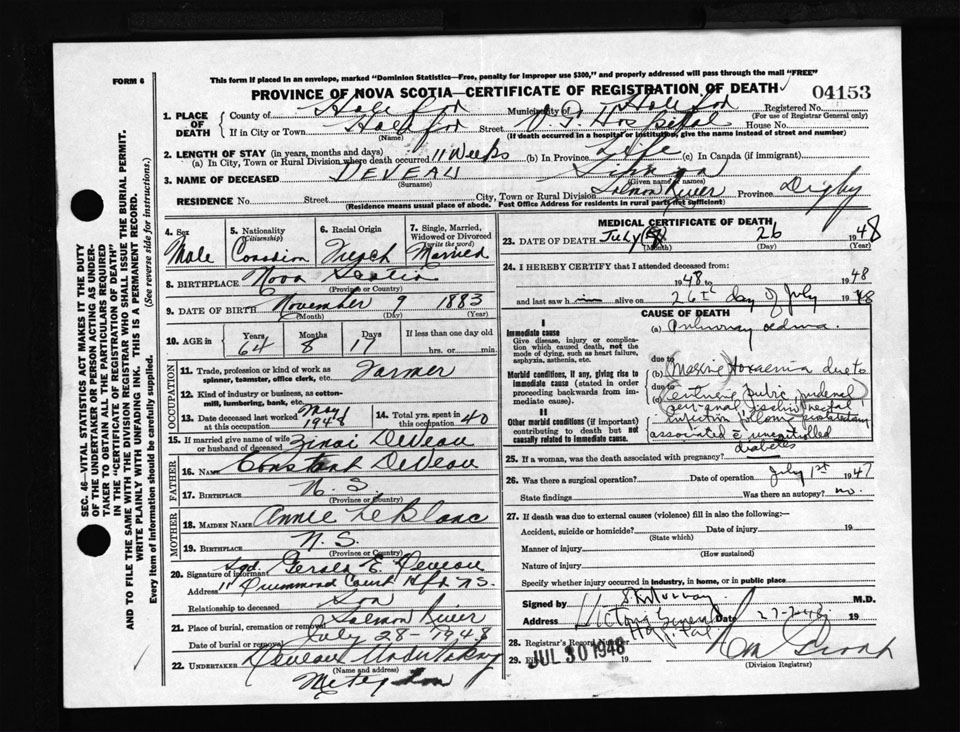 This form if placed in an envelope, marked "Dominion Statistics—Free, penalty for improper use $300," and properly addressed will pass through the mail "FREE"
FORM 6
PROVINCE OF NOVA SCOTIA—CERTIFICATE OF REGISTRATION OF DEATH
04153
SEC. 46—VITAL STATISTICS ACT MAKES IT THE DUTY
OF THE UNDERTAKER OR PERSON ACTING AS UNDER-
TAKER TO OBTAIN ALL THE PARTICULARS REQUIRED
IN THE "CERTIFICATE OF REGISTRATION OF DEATH"
AND TO FILE THE SAME WITH THE DIVISION REGISTRAR WHO SHALL ISSUE THE BURIAL PERMIT.
WRITE PLAINLY WITH UNFADING INK. THIS IS A PERMANENT RECORD.
Every item of information should be carefully supplied. (See reverse side for instructions.)
1. PLACE OF DEATH
County of Halifax Municipality of Halifax Registered No.
(For use of Registrar General only)
If in City or Town Halifax Street V. G. Hospital House No.
(Name) (If death occurred in a hospital or institution, give the name instead of street and number)
2. LENGTH OF STAY (in years, months and days)
(a) In City, Town or Rural Division where death occurred 11 Weeks (b) In Province Life (c) In Canada (if immigrant)
3. NAME OF DECEASED DEVEAU
(Surname) (Given name or names)
RESIDENCE No. Street City, Town or Rural Division Salmon River Province Digby
(Residence means usual place of abode. Post Office Address for residents in rural parts not sufficient)
4. Sex Male
5. Nationality (Citizenship) Canadian
6. Racial Origin French
7. Single, Married, Widowed or Divorced (write the word) Married
8. BIRTHPLACE Nova Scotia
(Province or Country)
9. DATE OF BIRTH November 9 1883
(Month) (Day) (Year)
10. AGE in Years Months Days If less than one day old
64 8 17 hrs. or min.
OCCUPATION
11. Trade, profession or kind of work as spinner, teamster, office clerk, etc. Farmer
12. Kind of industry or business, as cotton-mill, lumbering, bank, etc.
13. Date deceased last worked at this occupation May 1948
14. Total yrs. spent in this occupation 40
15. If married give name of wife or husband of deceased Zinai DeVeau
FATHER
16. NAME Constant DeVeau
17. BIRTHPLACE N. S.
(Province or Country)
MOTHER
18. MAIDEN NAME Annie LeBlanc
19. BIRTHPLACE N. S.
(Province or Country)
20. Signature of informant Sgd. Gerald E. Deveau
Address 11 Drummond Court Hfx N.S.
Relationship to deceased Son
21. Place of burial, cremation or removal Salmon River
Date of burial or removal July 28-1948
22. UNDERTAKER Deveau Undertaking
(Name and address)
Meteghan
MEDICAL CERTIFICATE OF DEATH
23. DATE OF DEATH July 26 1948
(Month) (Day) (Year)
24. I HEREBY CERTIFY that I attended deceased from:
1948 to 1948
and last saw him alive on 26th day of July 1948
CAUSE OF DEATH
I
Immediate cause
Give disease, injury or complication which caused death, not the mode of dying, such as heart failure, asphyxia, asthenia, etc.
(a) Pulmonary edema
due to
Morbid conditions, if any, giving rise to immediate cause (stated in order proceeding backwards from immediate cause).
(b) Massive toxaemia due to
due to
(c) pubic, pudenal
perineal ischio rectal
infection following prostatectomy
II
Other morbid conditions (if important) contributing to death but not causally related to immediate cause.
associated c uncontrolled
diabetes
25. If a woman, was the death associated with pregnancy?
26. Was there a surgical operation? Date of operation July 1st 1947
State findings Was there an autopsy? no.
27. If death was due to external causes (violence) fill in also the following:—
Accident, suicide or homicide? Date of injury 19
(State which)
Manner of injury
(How sustained)
Nature of injury
Specify whether injury occurred in industry, in home, or in public place
Signed by M.D.
Address Victoria General Hospital Date 27-7-48 19
28. Registrar's Record Number
29. JUL 30 1948 19
(Division Registrar)